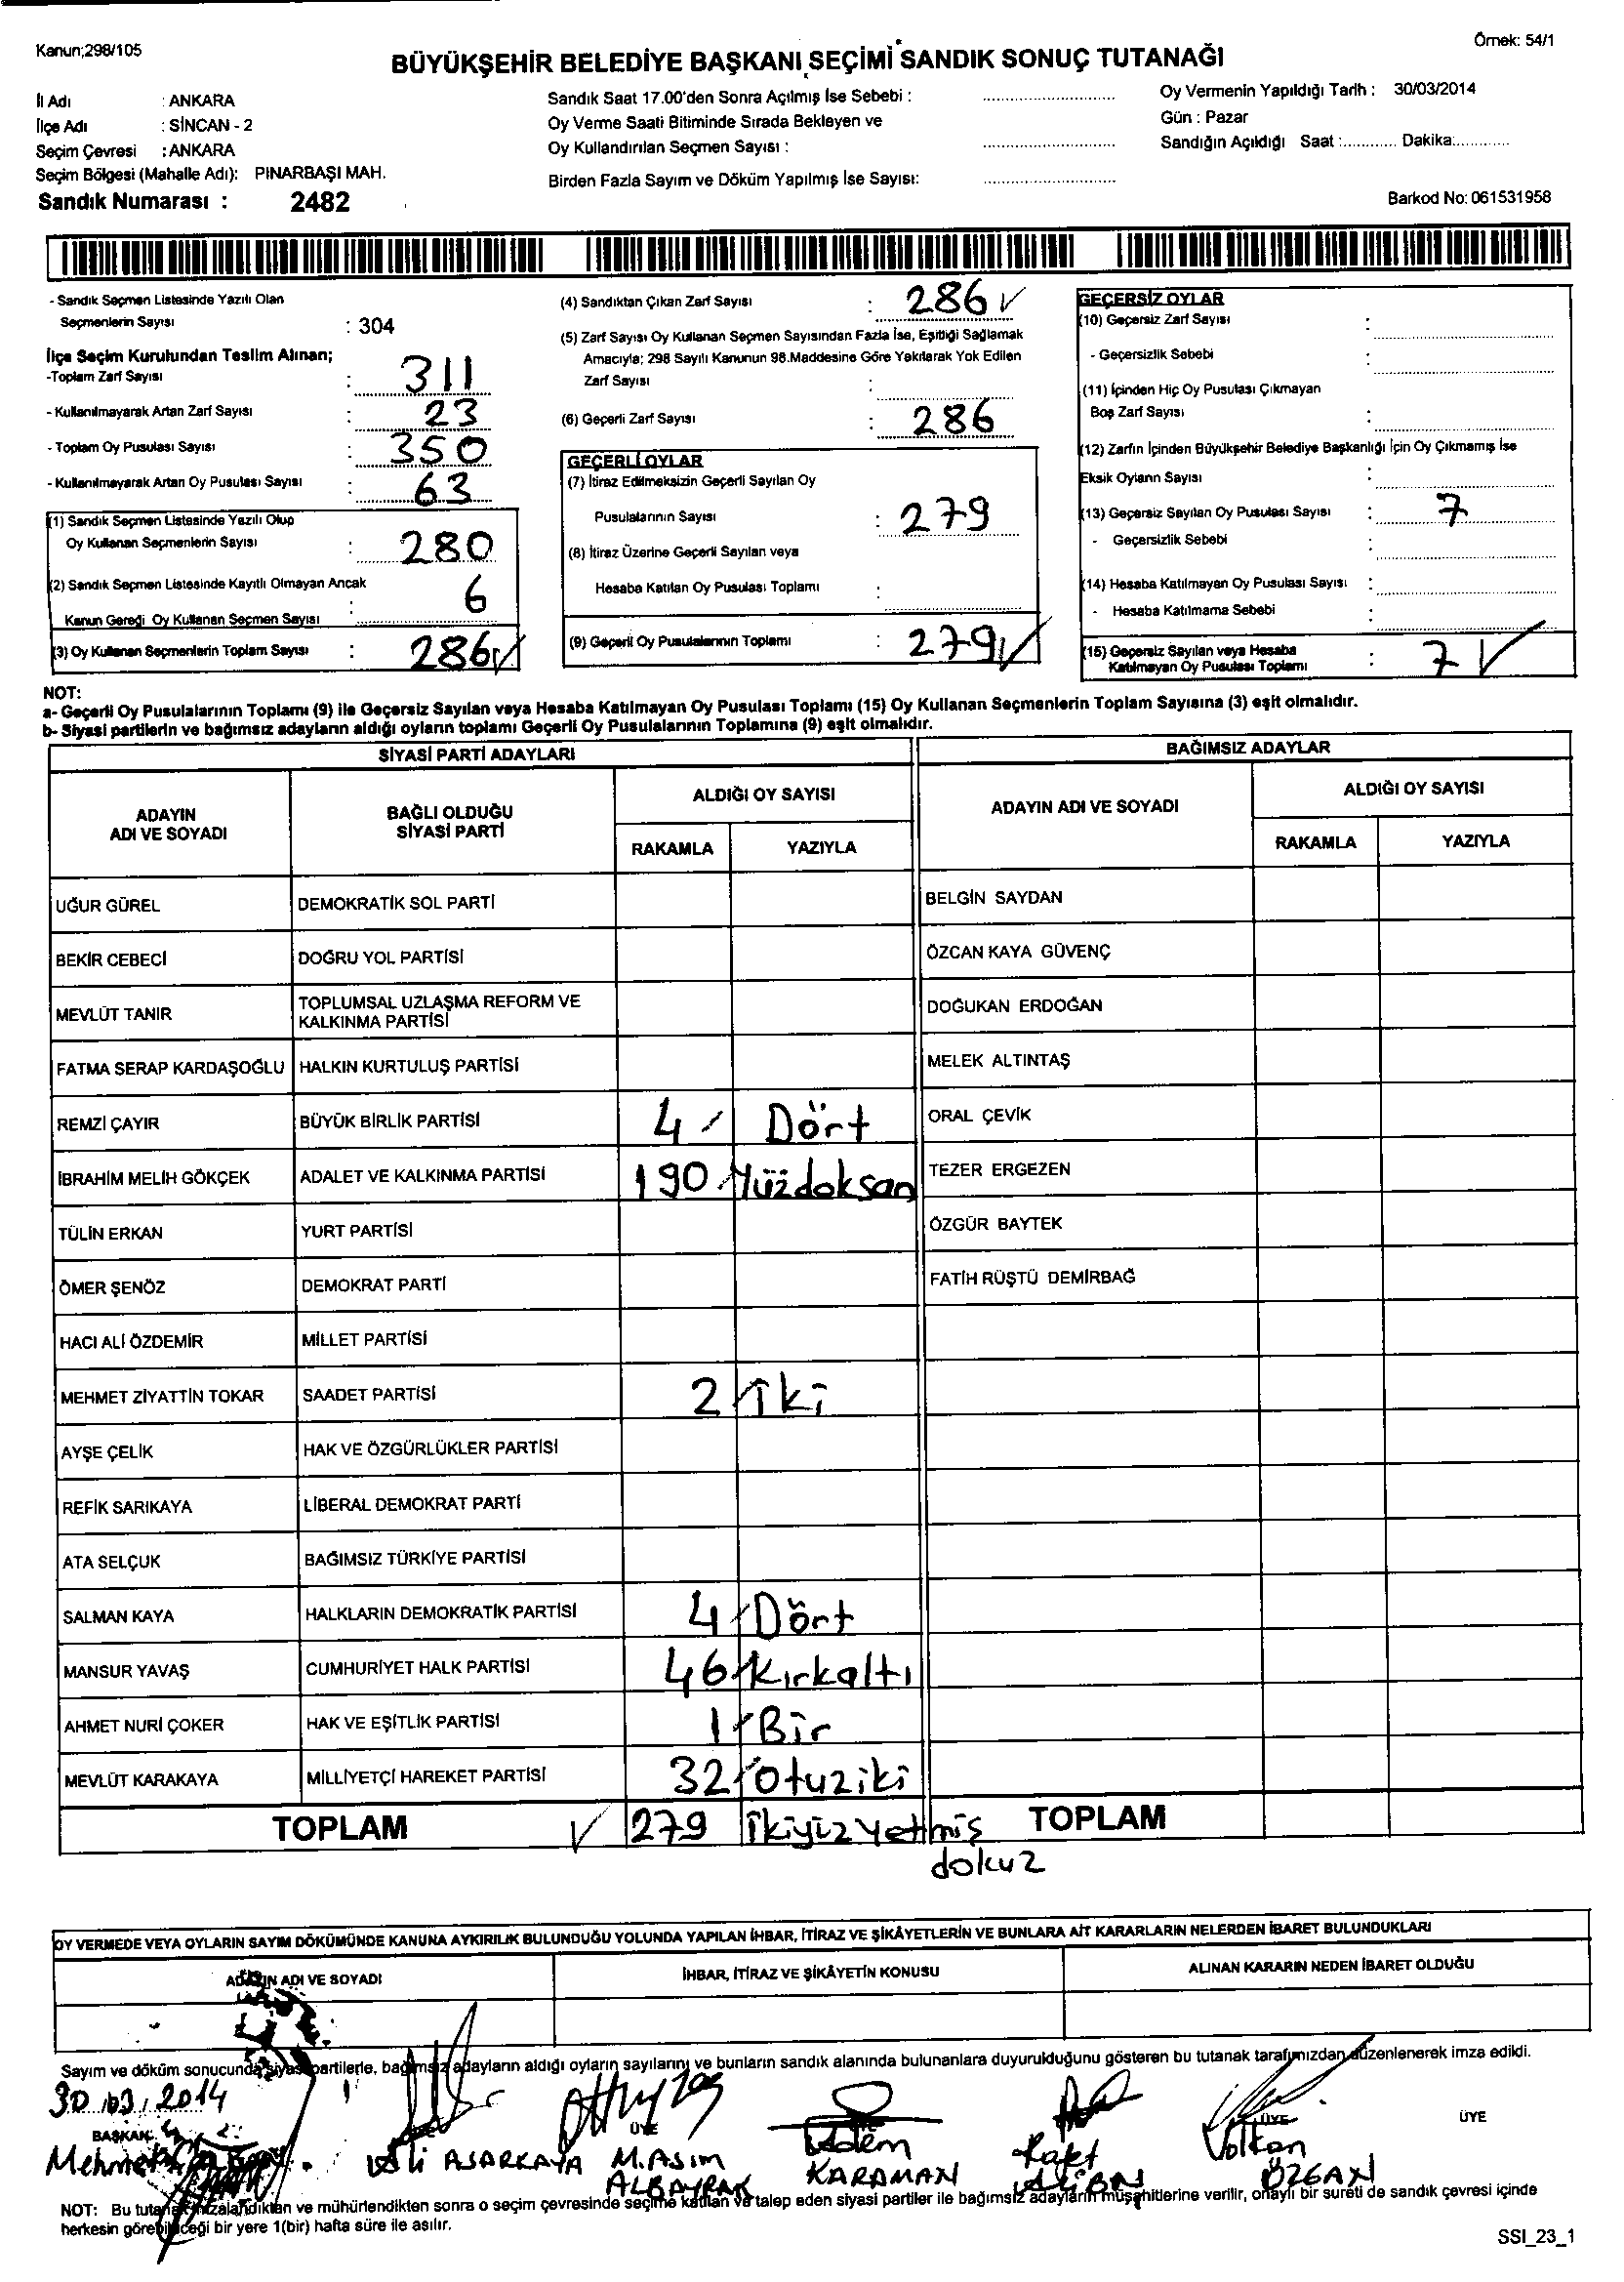 Kanun;298/105
Örnek: 54/1
BÜYÜKŞEHİR BELEDİYE BAŞKANI SEÇİMİ SANDIK SONUÇ TUTANAĞI
İl Adı : ANKARA
İlçe Adı : SİNCAN - 2
Seçim Çevresi : ANKARA
Seçim Bölgesi (Mahalle Adı): PINARBAŞI MAH.
Sandık Numarası : 2482
Sandık Saat 17.00'den Sonra Açılmış İse Sebebi :
Oy Verme Saati Bitiminde Sırada Bekleyen ve
Oy Kullandırılan Seçmen Sayısı :
Birden Fazla Sayım ve Döküm Yapılmış İse Sayısı:
Oy Vermenin Yapıldığı Tarih : 30/03/2014
Gün : Pazar
Sandığın Açıldığı Saat :............ Dakika:............
Barkod No: 061531958
- Sandık Seçmen Listesinde Yazılı Olan
Seçmenlerin Sayısı : 304
İlçe Seçim Kurulundan Teslim Alınan;
-Toplam Zarf Sayısı : 311
- Kullanılmayarak Artan Zarf Sayısı : 23
- Toplam Oy Pusulası Sayısı : 350
- Kullanılmayarak Artan Oy Pusulası Sayısı : 63
(1) Sandık Seçmen Listesinde Yazılı Olup
Oy Kullanan Seçmenlerin Sayısı : 280
(2) Sandık Seçmen Listesinde Kayıtlı Olmayan Ancak
Kanun Gereği Oy Kullanan Seçmen Sayısı : 6
(3) Oy Kullanan Seçmenlerin Toplam Sayısı : 286
(4) Sandıktan Çıkan Zarf Sayısı : 286
(5) Zarf Sayısı Oy Kullanan Seçmen Sayısından Fazla İse, Eşitliği Sağlamak
Amacıyla; 298 Sayılı Kanunun 98.Maddesine Göre Yakılarak Yok Edilen
Zarf Sayısı :
(6) Geçerli Zarf Sayısı : 286
GEÇERLİ OYLAR
(7) İtiraz Edilmeksizin Geçerli Sayılan Oy
Pusulalarının Sayısı : 279
(8) İtiraz Üzerine Geçerli Sayılan veya
Hesaba Katılan Oy Pusulası Toplamı :
(9) Geçerli Oy Pusulalarının Toplamı : 279
GEÇERSİZ OYLAR
(10) Geçersiz Zarf Sayısı :
- Geçersizlik Sebebi :
(11) İçinden Hiç Oy Pusulası Çıkmayan
Boş Zarf Sayısı :
(12) Zarfın İçinden Büyükşehir Belediye Başkanlığı İçin Oy Çıkmamış İse
Eksik Oyların Sayısı :
(13) Geçersiz Sayılan Oy Pusulası Sayısı : 7
- Geçersizlik Sebebi :
(14) Hesaba Katılmayan Oy Pusulası Sayısı :
- Hesaba Katılmama Sebebi :
(15) Geçersiz Sayılan veya Hesaba
Katılmayan Oy Pusulası Toplamı : 7
NOT:
a- Geçerli Oy Pusulalarının Toplamı (9) ile Geçersiz Sayılan veya Hesaba Katılmayan Oy Pusulası Toplamı (15) Oy Kullanan Seçmenlerin Toplam Sayısına (3) eşit olmalıdır.
b- Siyasi partilerin ve bağımsız adayların aldığı oyların toplamı Geçerli Oy Pusulalarının Toplamına (9) eşit olmalıdır.
SİYASİ PARTİ ADAYLARI
ADAYIN ADI VE SOYADI
BAĞLI OLDUĞU SİYASİ PARTİ
ALDIĞI OY SAYISI
RAKAMLA YAZIYLA
UĞUR GÜREL DEMOKRATİK SOL PARTİ
BEKİR CEBECİ DOĞRU YOL PARTİSİ
MEVLÜT TANIR TOPLUMSAL UZLAŞMA REFORM VE
KALKINMA PARTİSİ
FATMA SERAP KARDAŞOĞLU HALKIN KURTULUŞ PARTİSİ
REMZİ ÇAYIR BÜYÜK BİRLİK PARTİSİ 4 / Dört
İBRAHİM MELİH GÖKÇEK ADALET VE KALKINMA PARTİSİ 190 Yüzdoksan
TÜLİN ERKAN YURT PARTİSİ
ÖMER ŞENÖZ DEMOKRAT PARTİ
HACI ALİ ÖZDEMİR MİLLET PARTİSİ
MEHMET ZİYATTİN TOKAR SAADET PARTİSİ 2 / İki
AYŞE ÇELİK HAK VE ÖZGÜRLÜKLER PARTİSİ
REFİK SARIKAYA LİBERAL DEMOKRAT PARTİ
ATA SELÇUK BAĞIMSIZ TÜRKİYE PARTİSİ
SALMAN KAYA HALKLARIN DEMOKRATİK PARTİSİ 4 / Dört
MANSUR YAVAŞ CUMHURİYET HALK PARTİSİ 46 / Kırkaltı
AHMET NURİ ÇOKER HAK VE EŞİTLİK PARTİSİ 1 / Bir
MEVLÜT KARAKAYA MİLLİYETÇİ HAREKET PARTİSİ 32 / Otuziki
TOPLAM 279 İkiyüzyetmiş
dokuz
BAĞIMSIZ ADAYLAR
ADAYIN ADI VE SOYADI
ALDIĞI OY SAYISI
RAKAMLA YAZIYLA
BELGİN SAYDAN
ÖZCAN KAYA GÜVENÇ
DOĞUKAN ERDOĞAN
MELEK ALTINTAŞ
ORAL ÇEVİK
TEZER ERGEZEN
ÖZGÜR BAYTEK
FATİH RÜŞTÜ DEMİRBAĞ
TOPLAM
OY VERMEDE VEYA OYLARIN SAYIM DÖKÜMÜNDE KANUNA AYKIRILIK BULUNDUĞU YOLUNDA YAPILAN İHBAR, İTİRAZ VE ŞİKÂYETLERİN VE BUNLARA AİT KARARLARIN NELERDEN İBARET BULUNDUKLARI
ADAYIN ADI VE SOYADI
İHBAR, İTİRAZ VE ŞİKÂYETİN KONUSU
ALINAN KARARIN NEDEN İBARET OLDUĞU
Sayım ve döküm sonucunda siyasi partilerle, bağımsız adayların aldığı oyların sayılarını ve bunların sandık alanında bulunanlara duyurulduğunu gösteren bu tutanak tarafımızdan düzenlenerek imza edildi.
30.03.2014
BAŞKAN ÜYE ÜYE ÜYE
Mehmet
ASARKAYA
M.ASIM
ALBAYRAK
Adem
KARAMAN
Volkan
ÖZGAN
NOT: Bu tutanak imzalandıktan ve mühürlendikten sonra o seçim çevresinde seçime katılan ve talep eden siyasi partiler ile bağımsız adayların müşahitlerine verilir, onaylı bir sureti de sandık çevresi içinde
herkesin görebileceği bir yere 1(bir) hafta süre ile asılır.
SSI_23_1